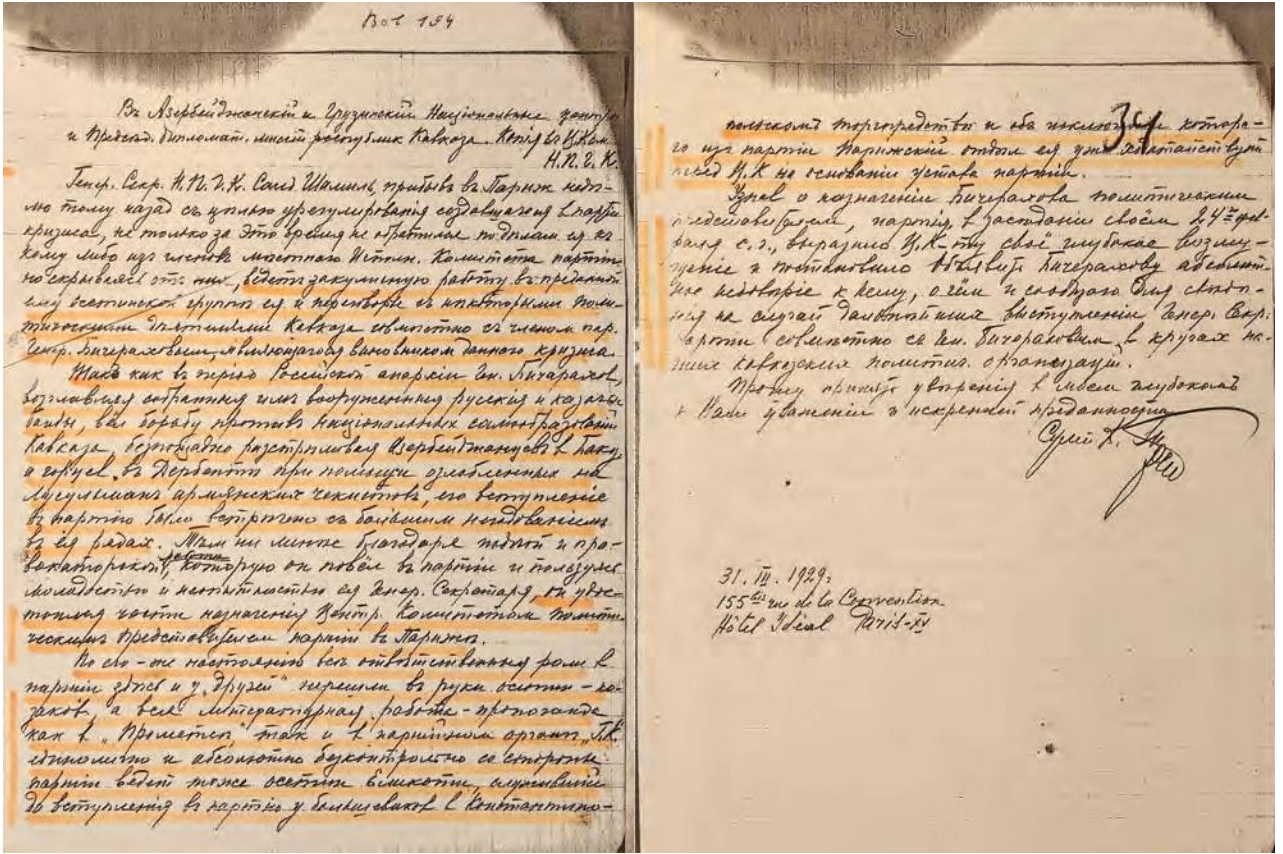 Вот 194
Въ Азербейджанскій и Грузинскій Національные центры
и Предсѣд. дипломат. миссій республик Кавказа. Копія въ Ц.Ком.
Н.П.Г.К.
Генер. Секр. Н.П.Г.К. Саид Шамиль, прибывъ в Париж недѣ-
лю тому назад съ цѣлью урегулированія создавшагося в партіи
кризиса, не только за это время не обратился по дѣлам ея къ
кому либо изъ членовъ мѣстнаго Исполн. Комитета партіи
но скрываясь отъ них, ведетъ закулисную работу въ преданной
ему осетинской группѣ ея и переговоры съ нѣкоторыми поли-
тическими дѣятелями Кавказа совмѣстно съ членом пар.
Генер. Бичераховым, являющагося виновником даннаго кризиса.
Такъ как въ період Россійской анархіи Ген. Бичерахов,
возглавляя собранныя имъ вооруженныя русскія и казачьи
банды, вел борьбу против національных самообразованій
Кавказа, безпощадно разстрѣливая Азербейджанцевъ в Баку,
а горцев в Дербентѣ при помощи озлобленных на
мусульманъ армянских чекистовъ, его вступленіе
въ партію было встрѣчено съ большим негодованіемъ
въ ея рядах. Тѣм ни менѣе благодаря подлой и про-
вокаторской работѣ, которую он повел в партіи и пользуясь
молодостью и неопытностью ея Генер. Секретаря, он удос-
тоился чести назначенія Центр. Комитетом полити-
ческимъ представителем партіи въ Парижѣ.
По его-же настоянію всѣ отвѣтственныя роли в
партіи здѣсь и у „друзей" перешли въ руки осетин-ка-
заков, а вся литературная работа-пропаганда
как в „Прометеѣ", так и в партійном органѣ „Г.К."
единолично и абсолютно безконтрольно со стороны
партіи ведет тоже осетин Еликоти, служившій
до вступленія въ партію у большевиков в Константино-
34
польском торгпредствѣ и об исключеніи которо-
го изъ партіи Парижскій отдѣл ея уже ходатайствует
перед Ц.К на основаніи устава партіи.
Узнав о назначеніи Бичерахова политическим
представителем, партія, в засѣданіи своем 24го фев-
раля с.г., выразила Ц.К-ту своё глубокое возму-
щеніе и постановила объявить Бичерахову абсолют-
ное недовѣріе к нему, о чём и сообщаю для свѣдѣ-
нія на случай дальнѣйших выступленій Генер. Секр.
партіи совмѣстно съ Ген. Бичераховым в кругах на-
ших кавказских политич. организацій.
Прошу принять увѣренія в моем глубоком
к Вам уваженіи и искренней преданности
31. III. 1929г
155 bis rue de la Convention
Hôtel Idéal Paris-XV